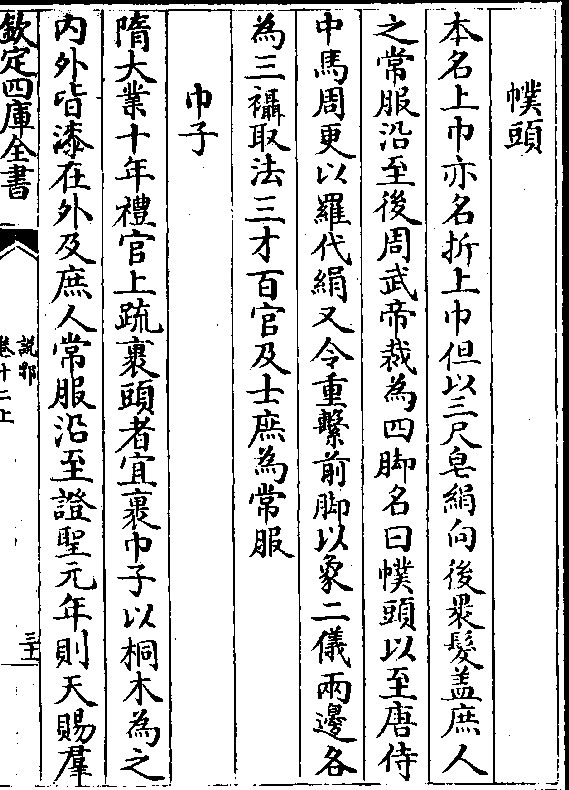 幞頭
本名上巾亦名折上巾但以三尺皂絹向後褁髮盖庶人
之常服沿至後周武帝裁為四脚名曰幞頭以至唐侍
中馬周更以羅代絹又令重繫前脚以象二儀兩邊各
為三襵取法三才百官及士庶為常服
巾子
隋大業十年禮官上疏裹頭者宜裹巾子以桐木為之
内外皆漆在外及庶人常服沿至證聖元年則天賜羣
欽定四庫全書
說郛
卷十二上